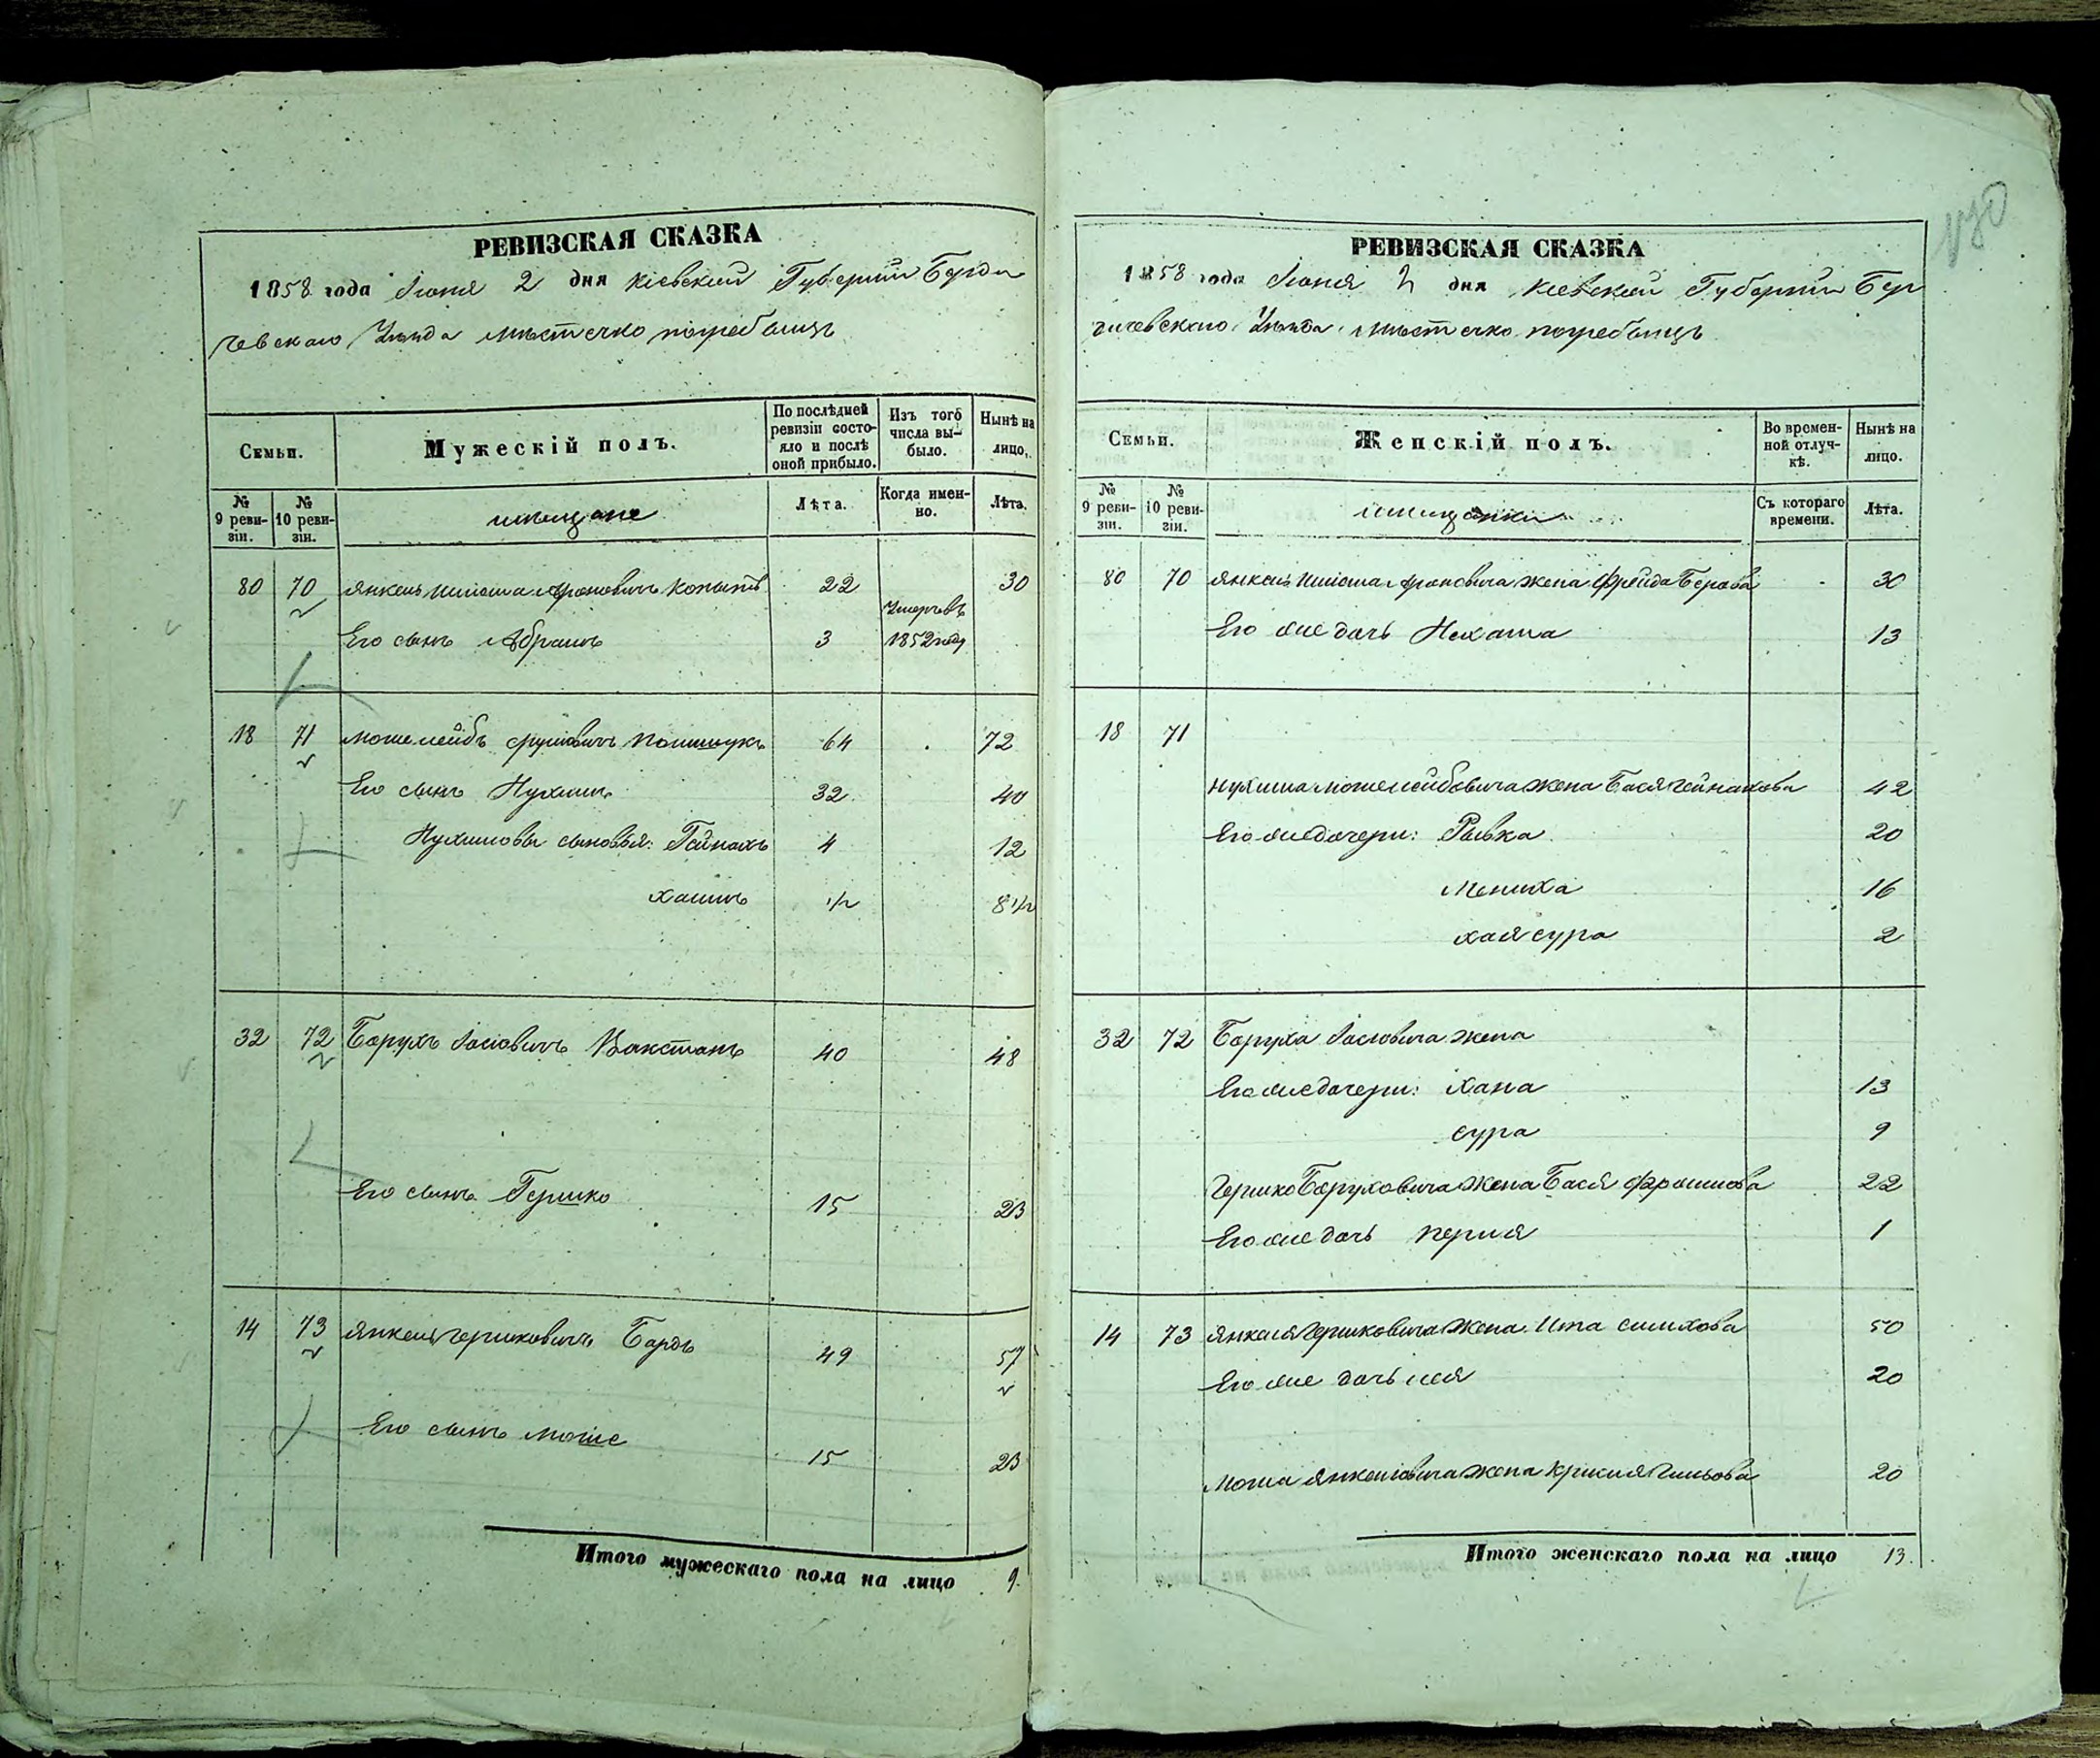 РЕВИЗСКАЯ СКАЗКА
1858 года Іюня 2 дня Кіевской Губерніи Берди
чевскаго Уѣзда мѣстечко погребыщъ
Семьи.
Мужескій полъ.
По послѣдней ревизіи состояло и послѣ оной прибыло.
Изъ того числа выбыло.
Нынѣ на лицо.
№ 9 ревизіи.
№ 10 ревизіи.
мѣщане
Лѣта.
Когда именно.
Лѣта.
80 70 Янкель Арановичъ 22 30
Его сынъ Абрамъ 3 Умеръ въ 1852 году
18 71 Мошелейбъ Сруловичъ 64 72
Его сынъ Нухимъ 32 40
Нухимовы сыновья: Гейнахъ 4 12
Хаимъ 1/2 8 1/2
32 72 Борухъ Іосіовичъ Вакстанъ 40 48
Его сынъ Гершко 15 23
14 73 Янкель Гершковичъ Бардъ 49 57
Его сынъ Моше 15 23
Итого мужескаго пола на лицо 9.
180
РЕВИЗСКАЯ СКАЗКА
1858 года Іюня 2 дня Кіевской Губерніи Бер
дичевскаго Уѣзда мѣстечко погребыщъ
Семьи.
Женскій полъ.
Во временной отлучкѣ.
Нынѣ на лицо.
№ 9 ревизіи.
№ 10 ревизіи.
мѣщанки
Съ котораго времени.
Лѣта.
80 70 Арановича жена Фрейда Берова 30
Его же дочь Нехама 13
18 71
Нухима Мошелейбовича жена Бася Гейнахова 42
Его же дочери: Рывка 20
Мениха 16
Хая сура 2
32 72 Боруха Іосіовича жена
Его же дочери: Хана 13
сура 9
Гершко Боруховича жена Бася Фроимова 22
Его же дочь Перля 1
14 73 Янкеля Гершковича жена Ита Симхова 50
Его же дочь Лея 20
Моша Янкелевича жена 20
Итого женскаго пола на лицо 13.